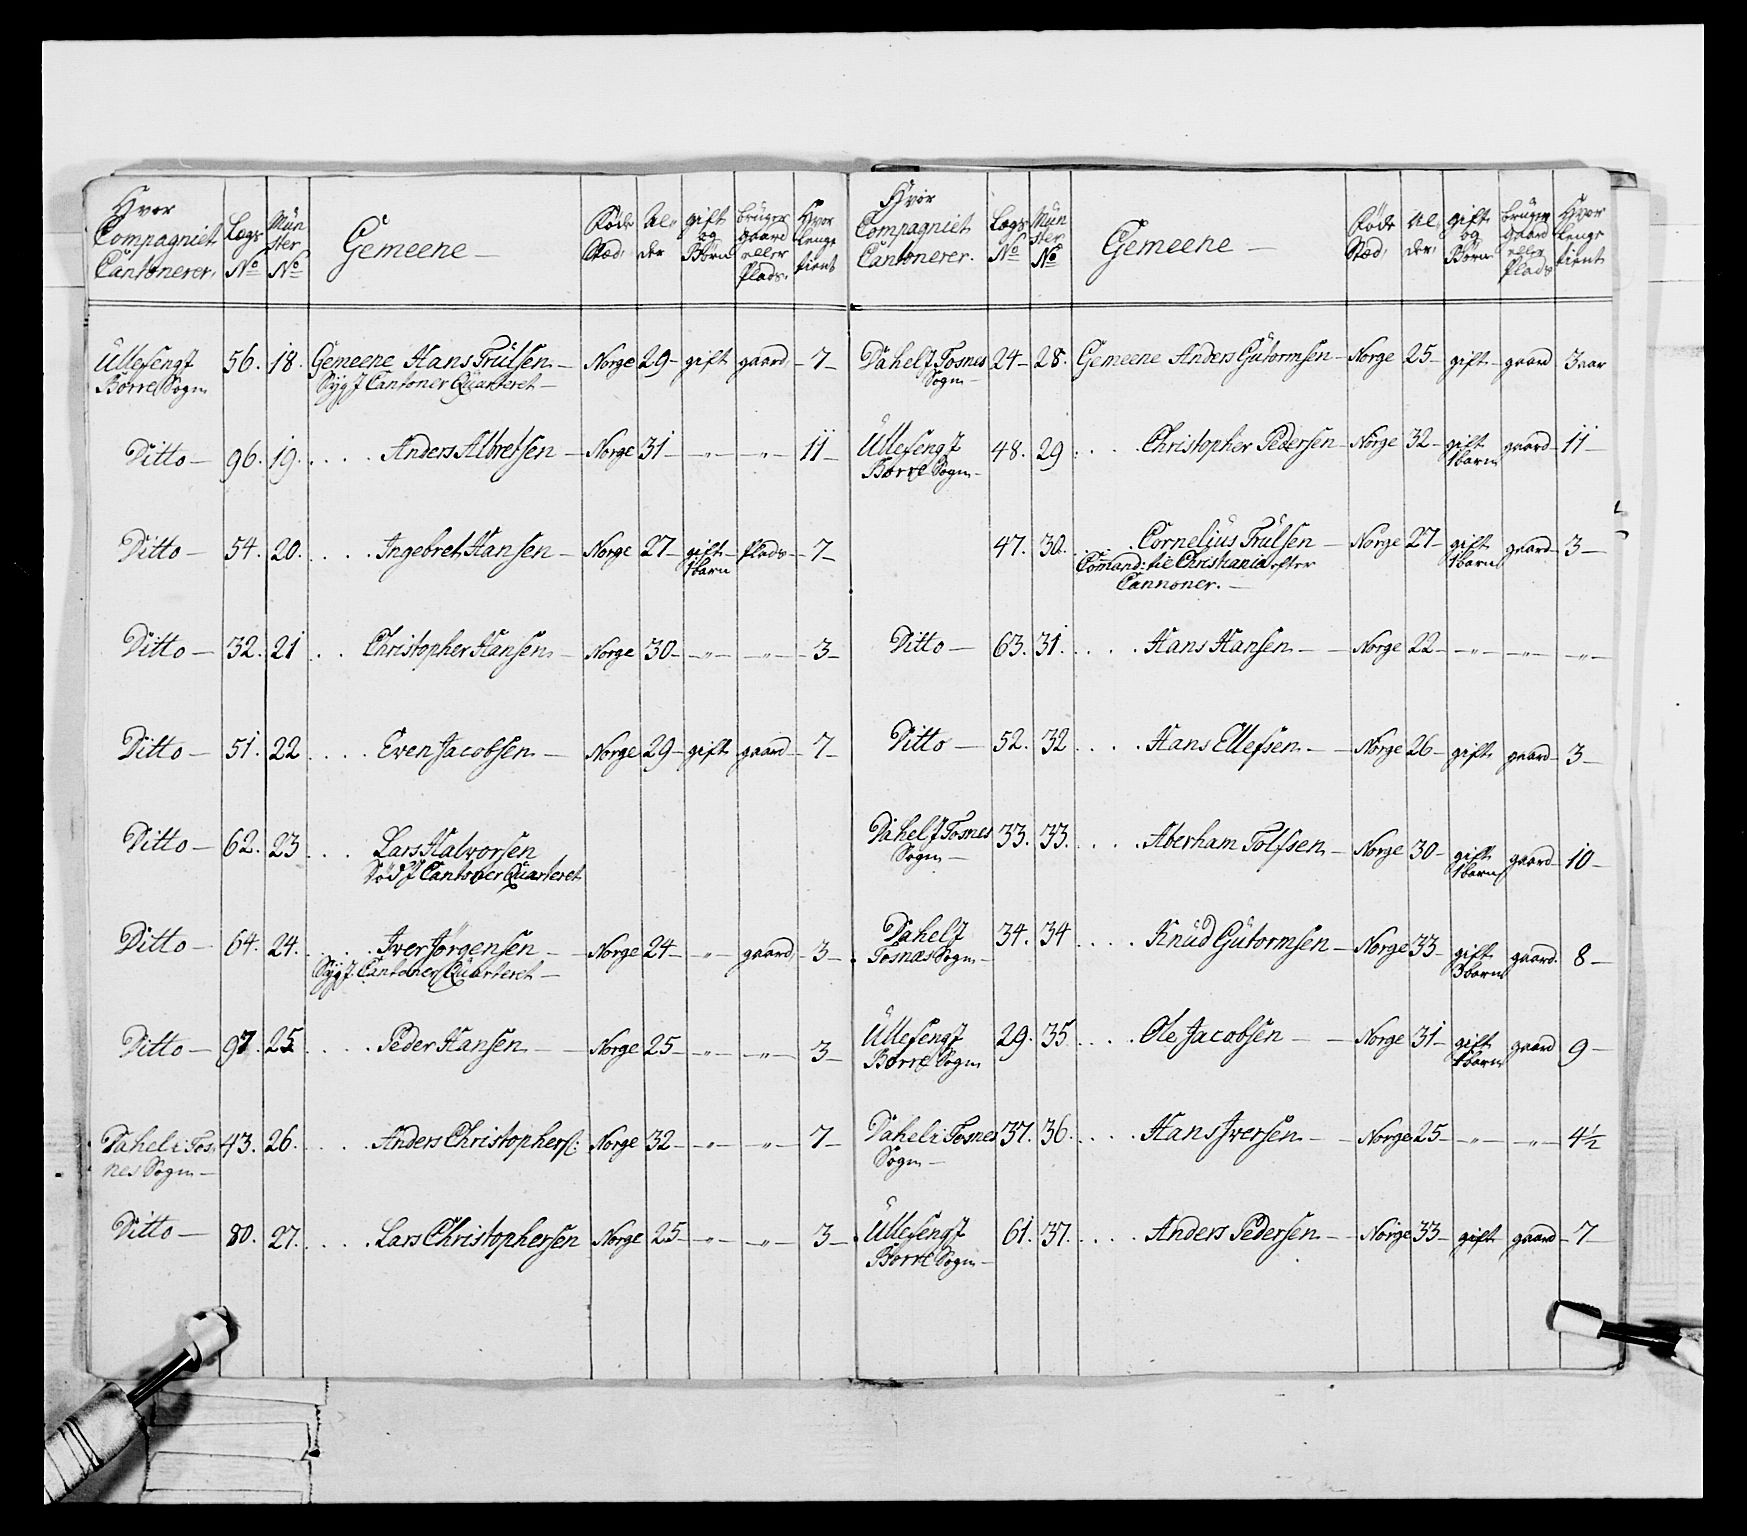 Hvor Compagniet Cantonerer. Lægs No Münster No Gemeene — Føde Stæd. Alder gift og Børn brüger gaard eller Plads. Hvor lenge tient
Üllefeng J Borre Sogn 56. 18. Gemeene Hans Trülsen — Norge 29 — gift gaard — 7 —
Syg J Cantoner Quarteret —
Ditto — 96. 19. . . . Anders Albretsen — Norge 31 — — " — — " — 11 —
Ditto — 54. 20. . . . Ingebret Hansen — Norge 27 — gift 1 barn Plads — 7 —
Ditto — 32. 21 . . . Christopher Hansen — Norge 30 — — " — — " — 3 —
Ditto — 51. 22 . . . Even Jacobsen — Norge 29 — gift gaard — 7 —
Ditto — 62. 23 . . . Lars Halvorsen
Död J Cantoner Quarteret
Ditto — 64. 24. . . . Iver Jörgensen — Norge 24 — — " — gaard — 3 —
Syg J. Cantoner Quarteret —
Ditto — 97. 25 . . . Peder Hansen — Norge 25 — — " — — " — 3 —
Dahel i Tosnes Sogn — 43. 26. . . . Anders Christophers: Norge 32 — — " — — " — 7 —
Ditto — 80. 27. . . . Lars Christophersen Norge 25 — — " — — " — 3 —
Hvor Compagniet Cantonerer. Lægs No Münster No Gemeene — Föde Stæd. Alder. gift og Börn brüger gaard eller Plads Hvor lenge tient
Dahel J Tosnes Sogn — 24 — 28. Gemeene Anders Gütormsen — Norge 25 — gift — gaard 3 aar
Üllefeng J Borre Sogn — 48. 29 . . . Christopher Pedersen — Norge 32 — gift 1 barn gaard — 11 —
47. 30. . . . Cornelius Trülsen — Norge 27 — gift 1 barn gaard — 3 —
Comand: til Christiania efter
Cannoner. —
Ditto — 63. 31. . . . Hans Hansen — — Norge 22 — — " — — " — — " —
Ditto — 52. 32 . . . Hans Ellefsen — — Norge 26 — gift gaard — 3 —
Dahel J Tosnes Sogn — 33. 33. . . . Aberham Tolfsen — Norge 30 — gift 1 barn gaard — 10 —
Dahel J Tosnæs Sogn — 34. 34 . . . Knüd Gütormsen — Norge 33 — gift 3 barn gaard. 8 —
Üllefeng J Borre Sogn 29. 35 . . . Ole Jacobsen — — Norge 31 — gift 1 barn gaard 9 —
Dahel i Tosnes Sogn — 37. 36. . . . Hans Iversen — Norge 25 — — " — — " — 4 1/2
Üllefeng J Borre Sogn — 61. 37. . . . Anders Pedersen — Norge 33 — gift gaard — 7 —